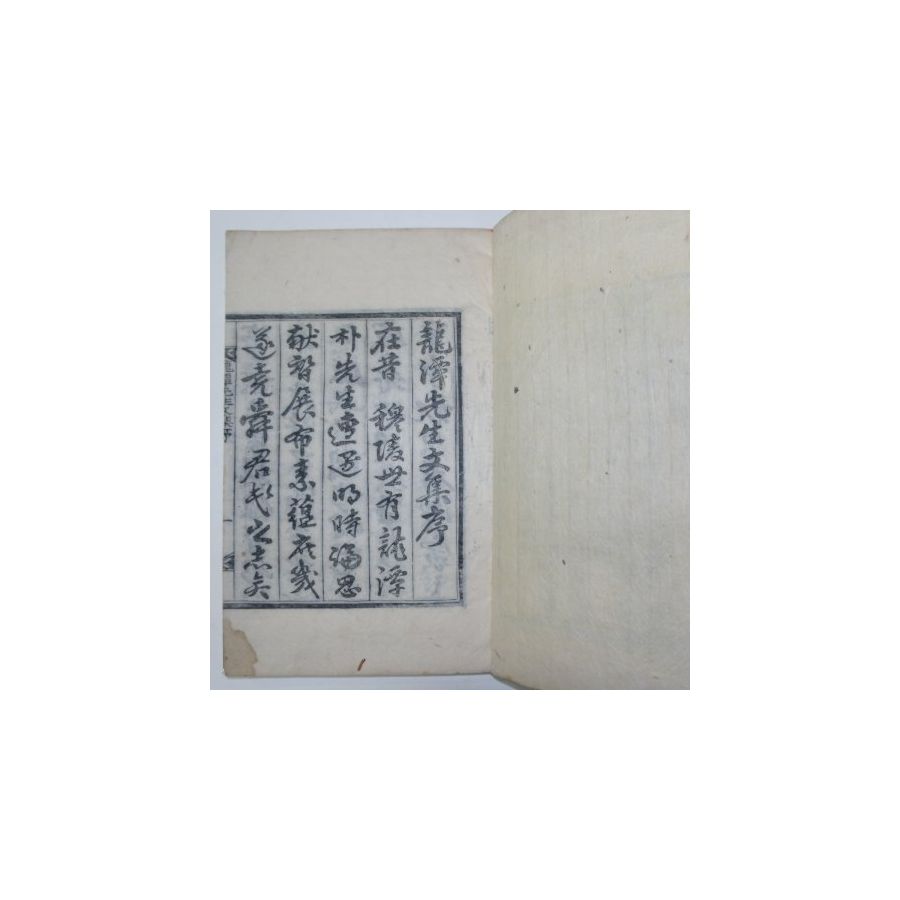 龍潭先生文集序
在昔 穆陵世有龍潭
朴先生遭遇明時竭思
獻智展布素蘊庶幾
遂堯舜君民之志矣
龍潭先生文集序